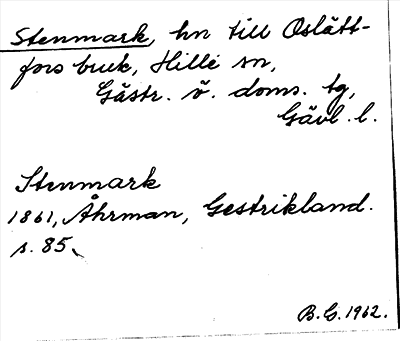 Stenmark, hn till Oslätt-
fors bruk, Hille sn,
Gästr. ö. doms. tg,
Gävl. l.
Stenmark
1861, Åhrman, Gestrikland.
s. 85.
B.G. 1962.